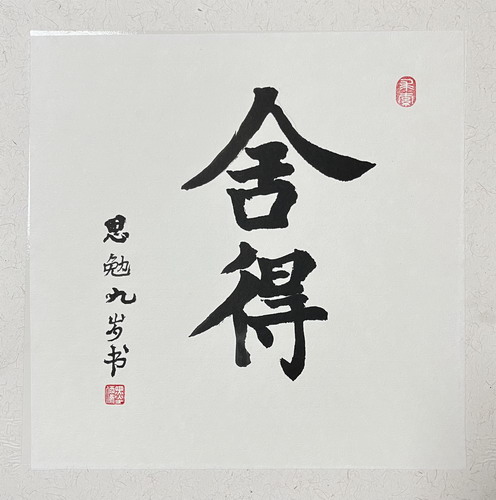 舍得
思勉九岁书